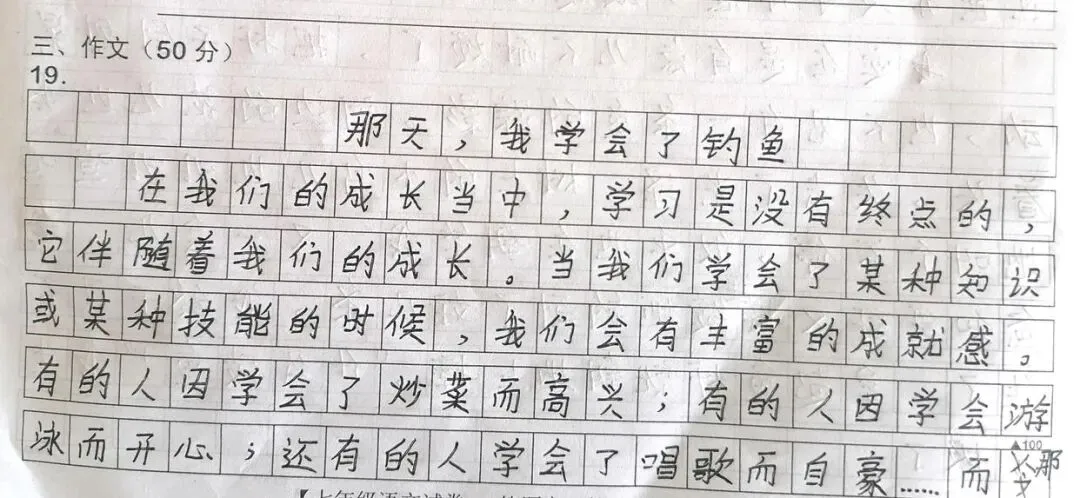 三、作文（50分）
19.
那天，我学会了钓鱼
在我们的成长当中，学习是没有终点的，
它伴随着我们的成长。当我们学会了某种知识
或某种技能的时候，我们会有丰富的成就感。
有的人因学会了炒菜而高兴；有的人因学会游
泳而开心；还有的人学会了唱歌而自豪……而那
▲100
【七年级语文试卷